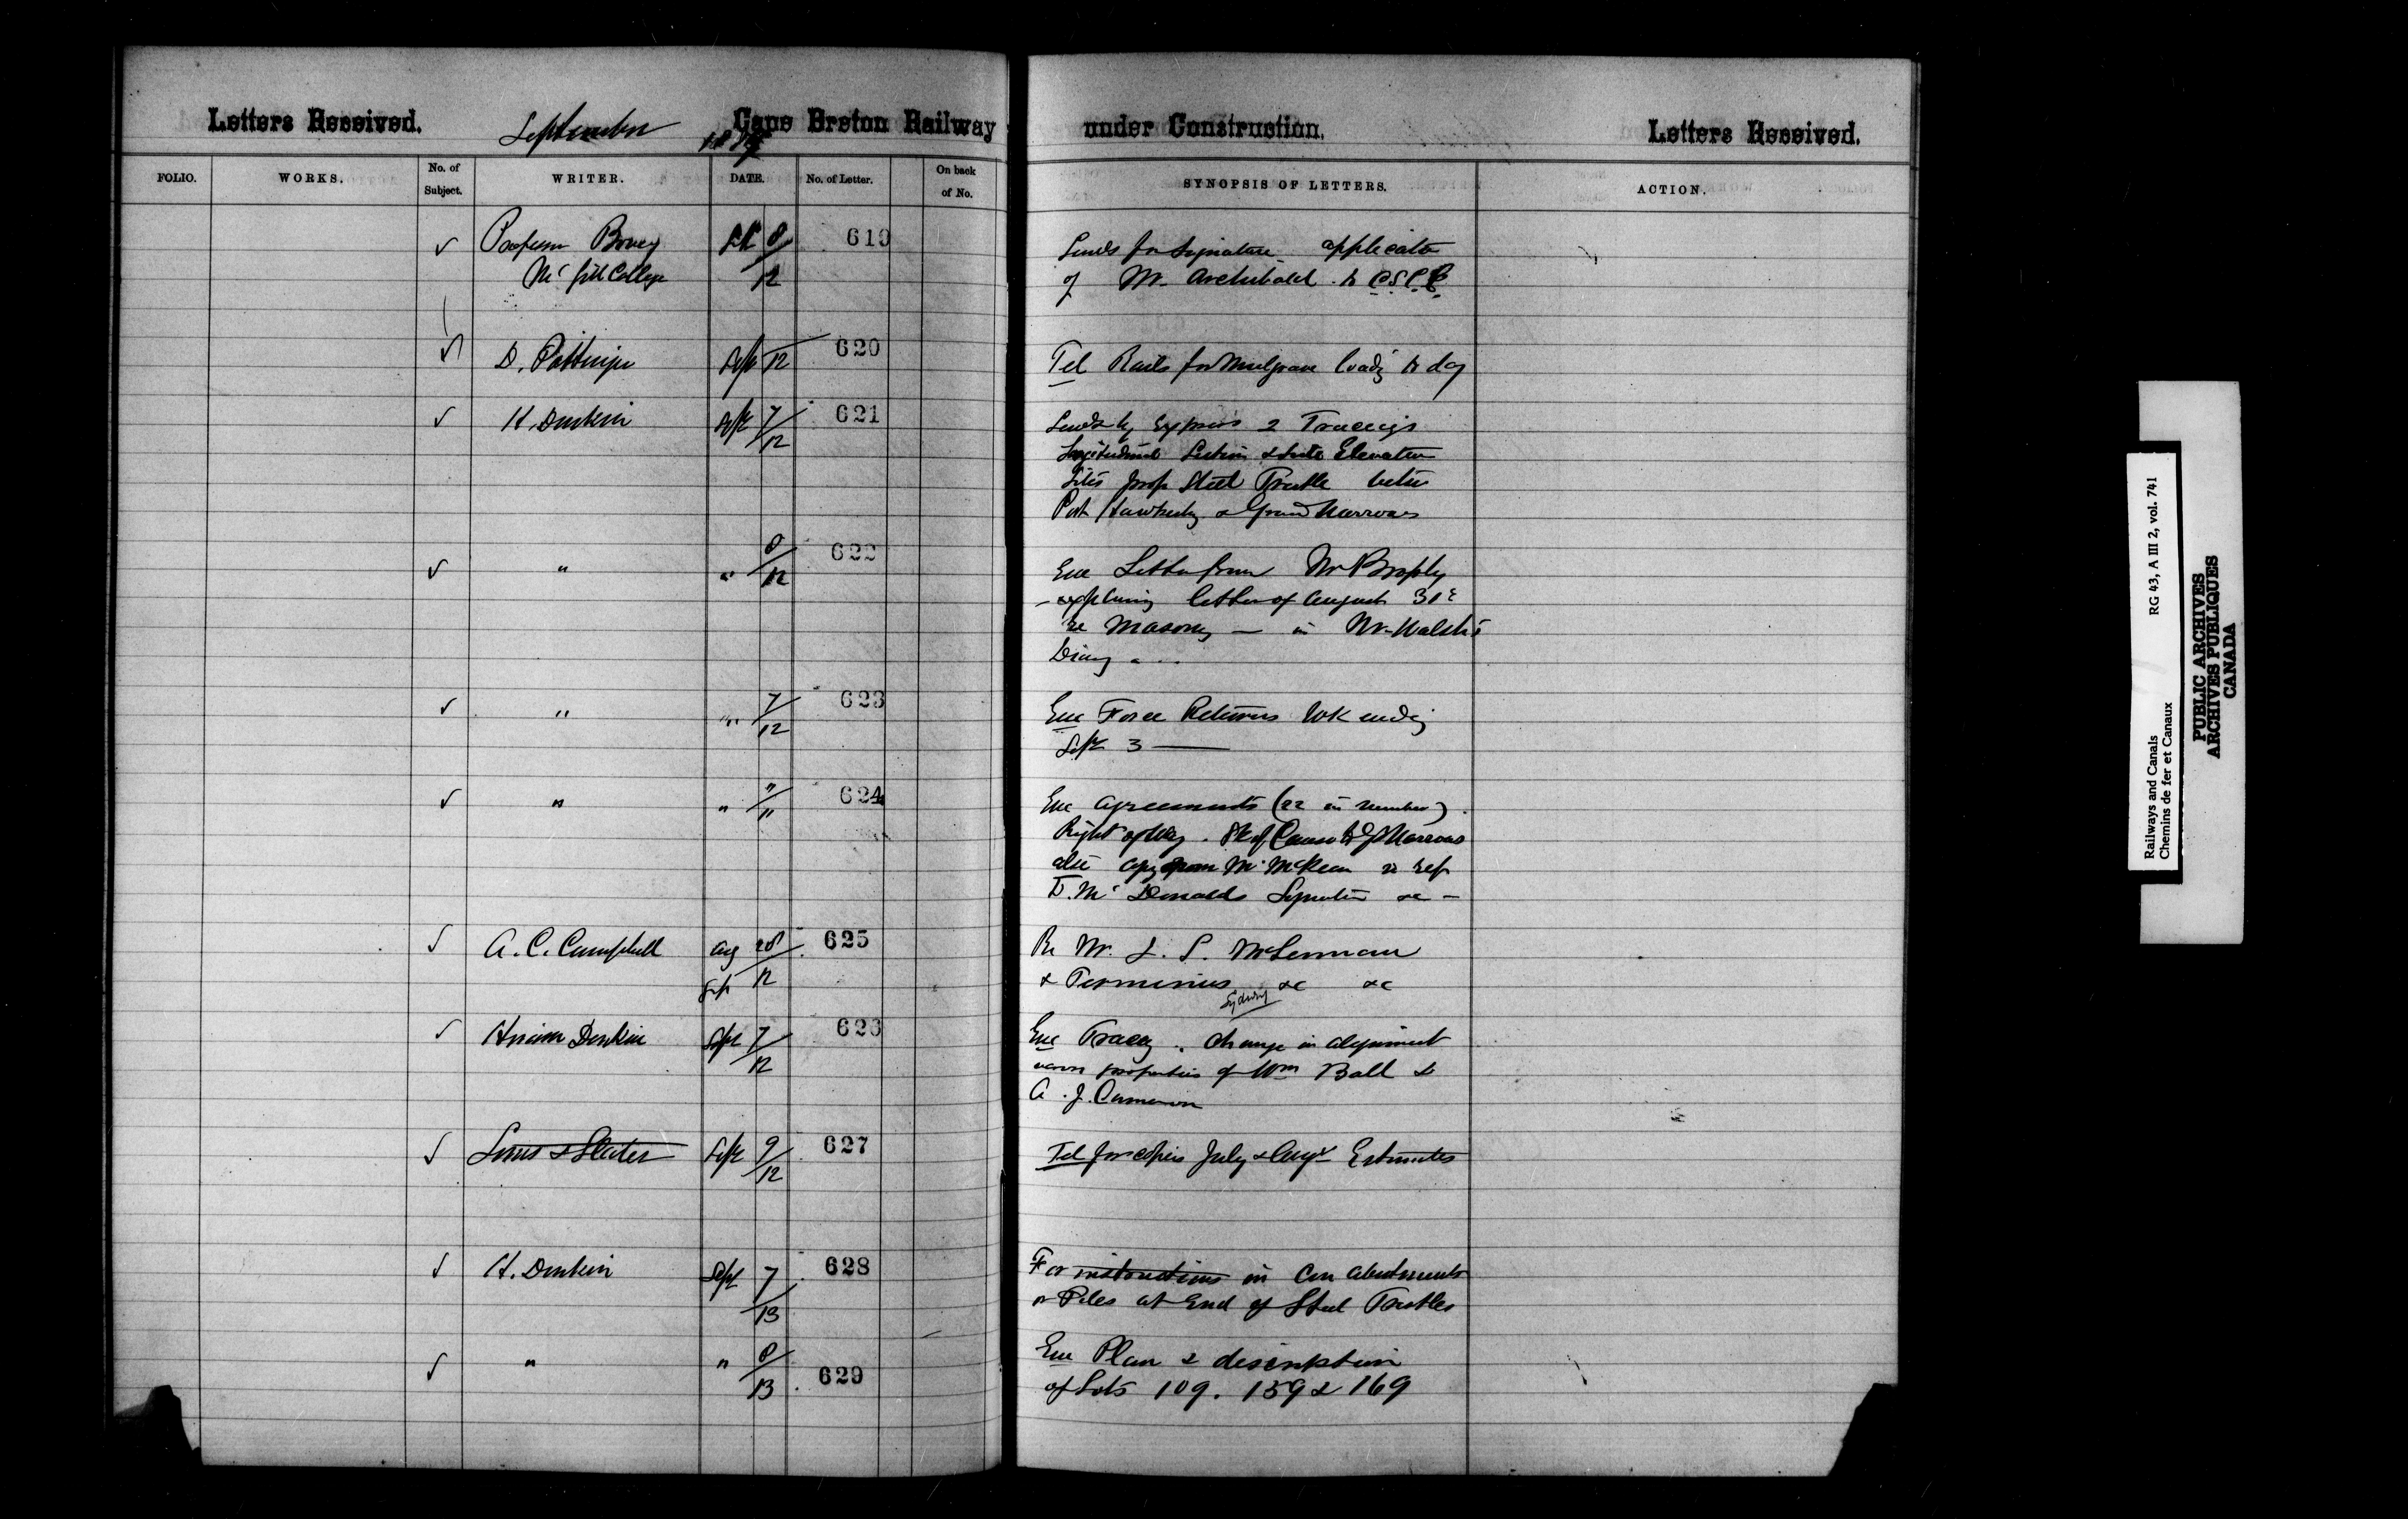 Letters Received. September 1887 Cape Breton Railway under Construction. Letters Received.
FOLIO. WORKS. No. of Subject. WRITER. DATE. No. of Letter. On back of No. SYNOPSIS OF LETTERS. ACTION.
Professor Bovey Sept 8/12 619 Sends for Signature applicatn
McGill College of Mr. Archibald to C.S.C.E.
D. Pottinger Sept 12 620 Tel Rails for Mulgrave loadg to day
H. Donkin Sept 7/12 621 Sends by Express 2 Tracings
Longitudinal Section & Side Elevation
Sites prop Steel Trestle betn
Port Hawkesby & Grand Narrows
" " 8/12 622 Enc Letter from Mr Brophy
explaining letter of August 31st
re Masonry — in Mr. Walsh's
Diary
" " 7/12 623 Enc Force Returns Wk endg
Sept 3 —
" " "/" 624 Enc Agreements (22 in number).
Right of Way. St of Canso to Gd Narrows
also copy from Mr McKeen re
D. McDonalds Signature &c —
A. C. Campbell Aug 28 Sept 12 625 Re Mr. J. S. McLennan
& Terminus Sydney &c &c
Hiram Donkin Sept 7/12 626 Enc Tracg. change in alignment
across properties of Wm Ball &
A. J. Cameron
Sims & Slater Sept 9/12 627 Tel for copies July & Augt Estimates
H. Donkin Sept 7/13 628 For instructions in Con abutments
or Piles at End of Steel Trestles
" " 8/13 629 Enc Plan & description
of Lots 109. 159 & 169
Railways and Canals RG 43, A III 2, vol. 741
Chemins de fer et Canaux
PUBLIC ARCHIVES
ARCHIVES PUBLIQUES
CANADA